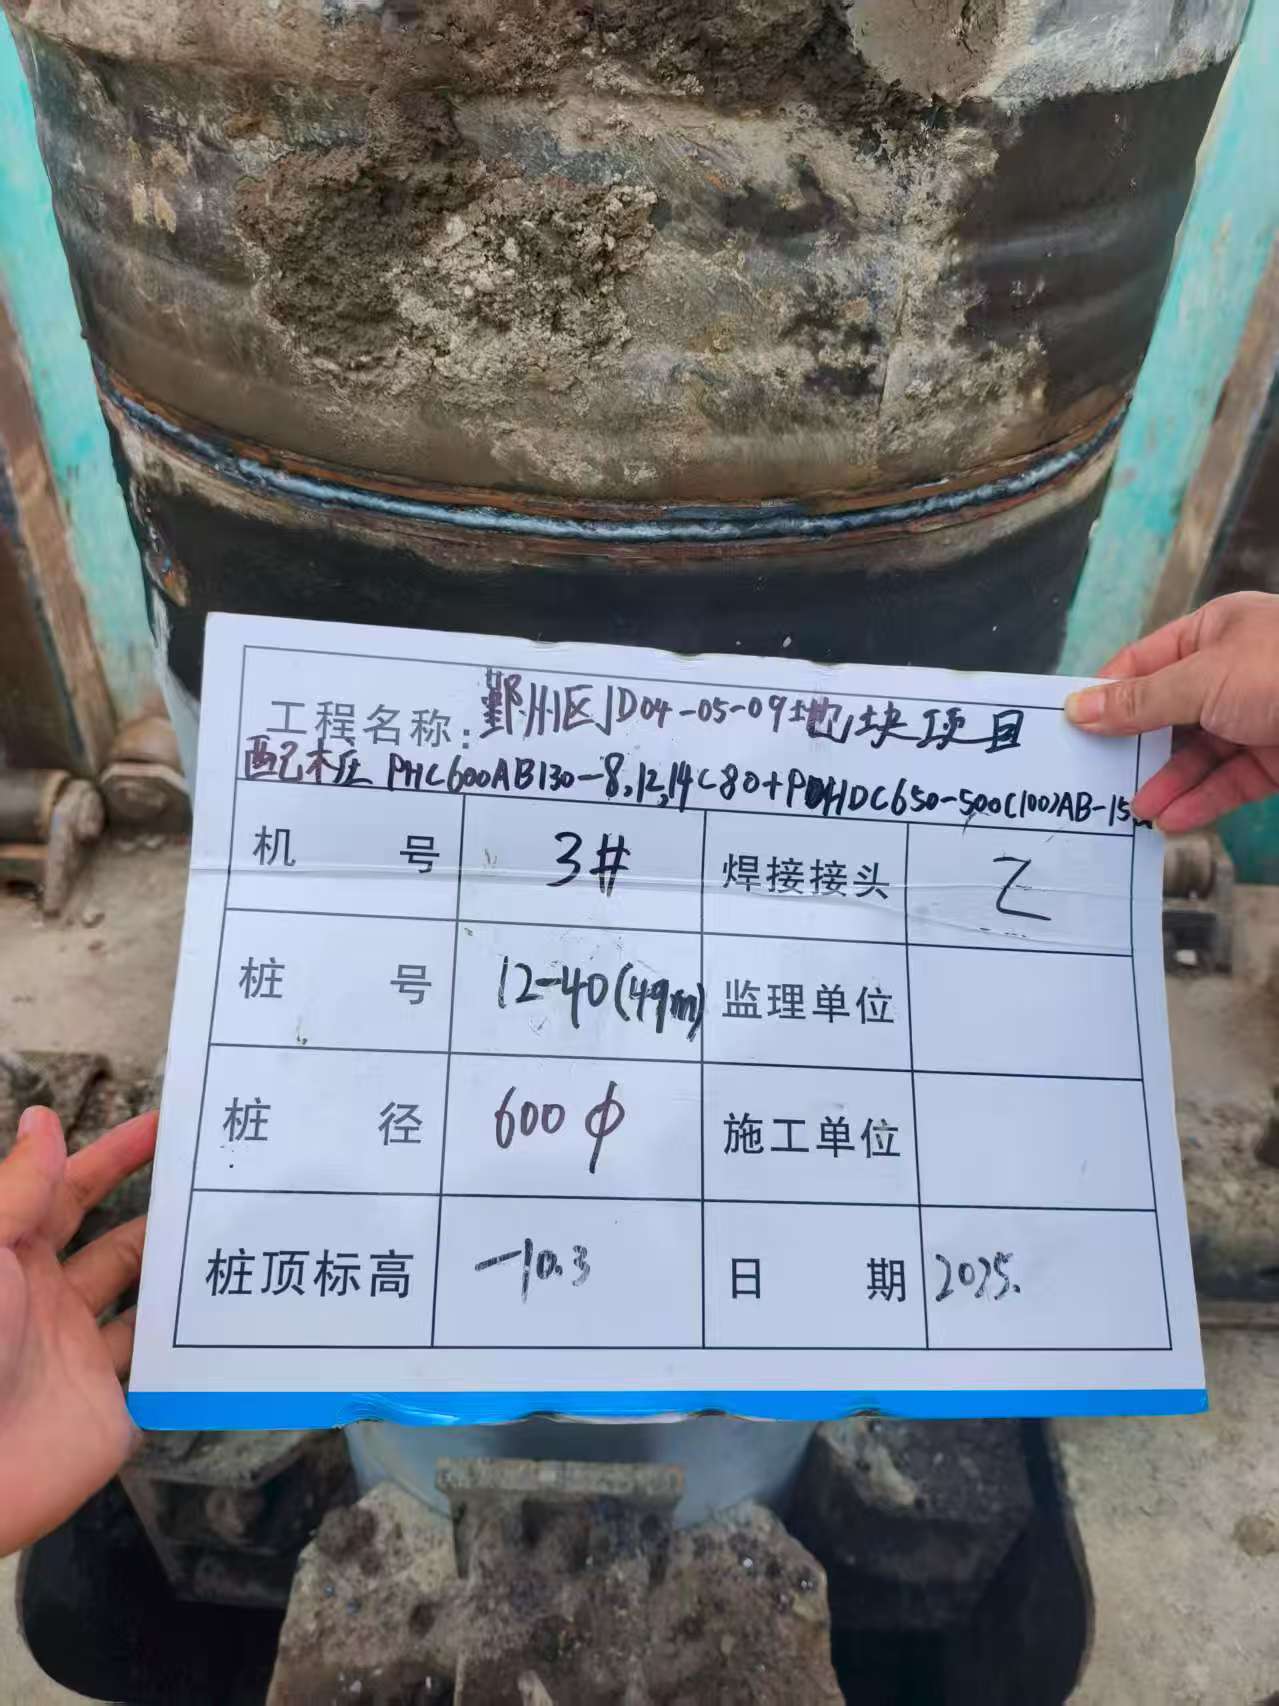 工程名称: 鄞州区JD04-05-09地块项目
配桩 PHC600AB130-8,12,14C80+PHDC650-500(100)AB-15
机号 3# 焊接接头 乙
桩号 12-40(49m) 监理单位
桩径 600φ 施工单位
桩顶标高 -10.3 日期 2025.